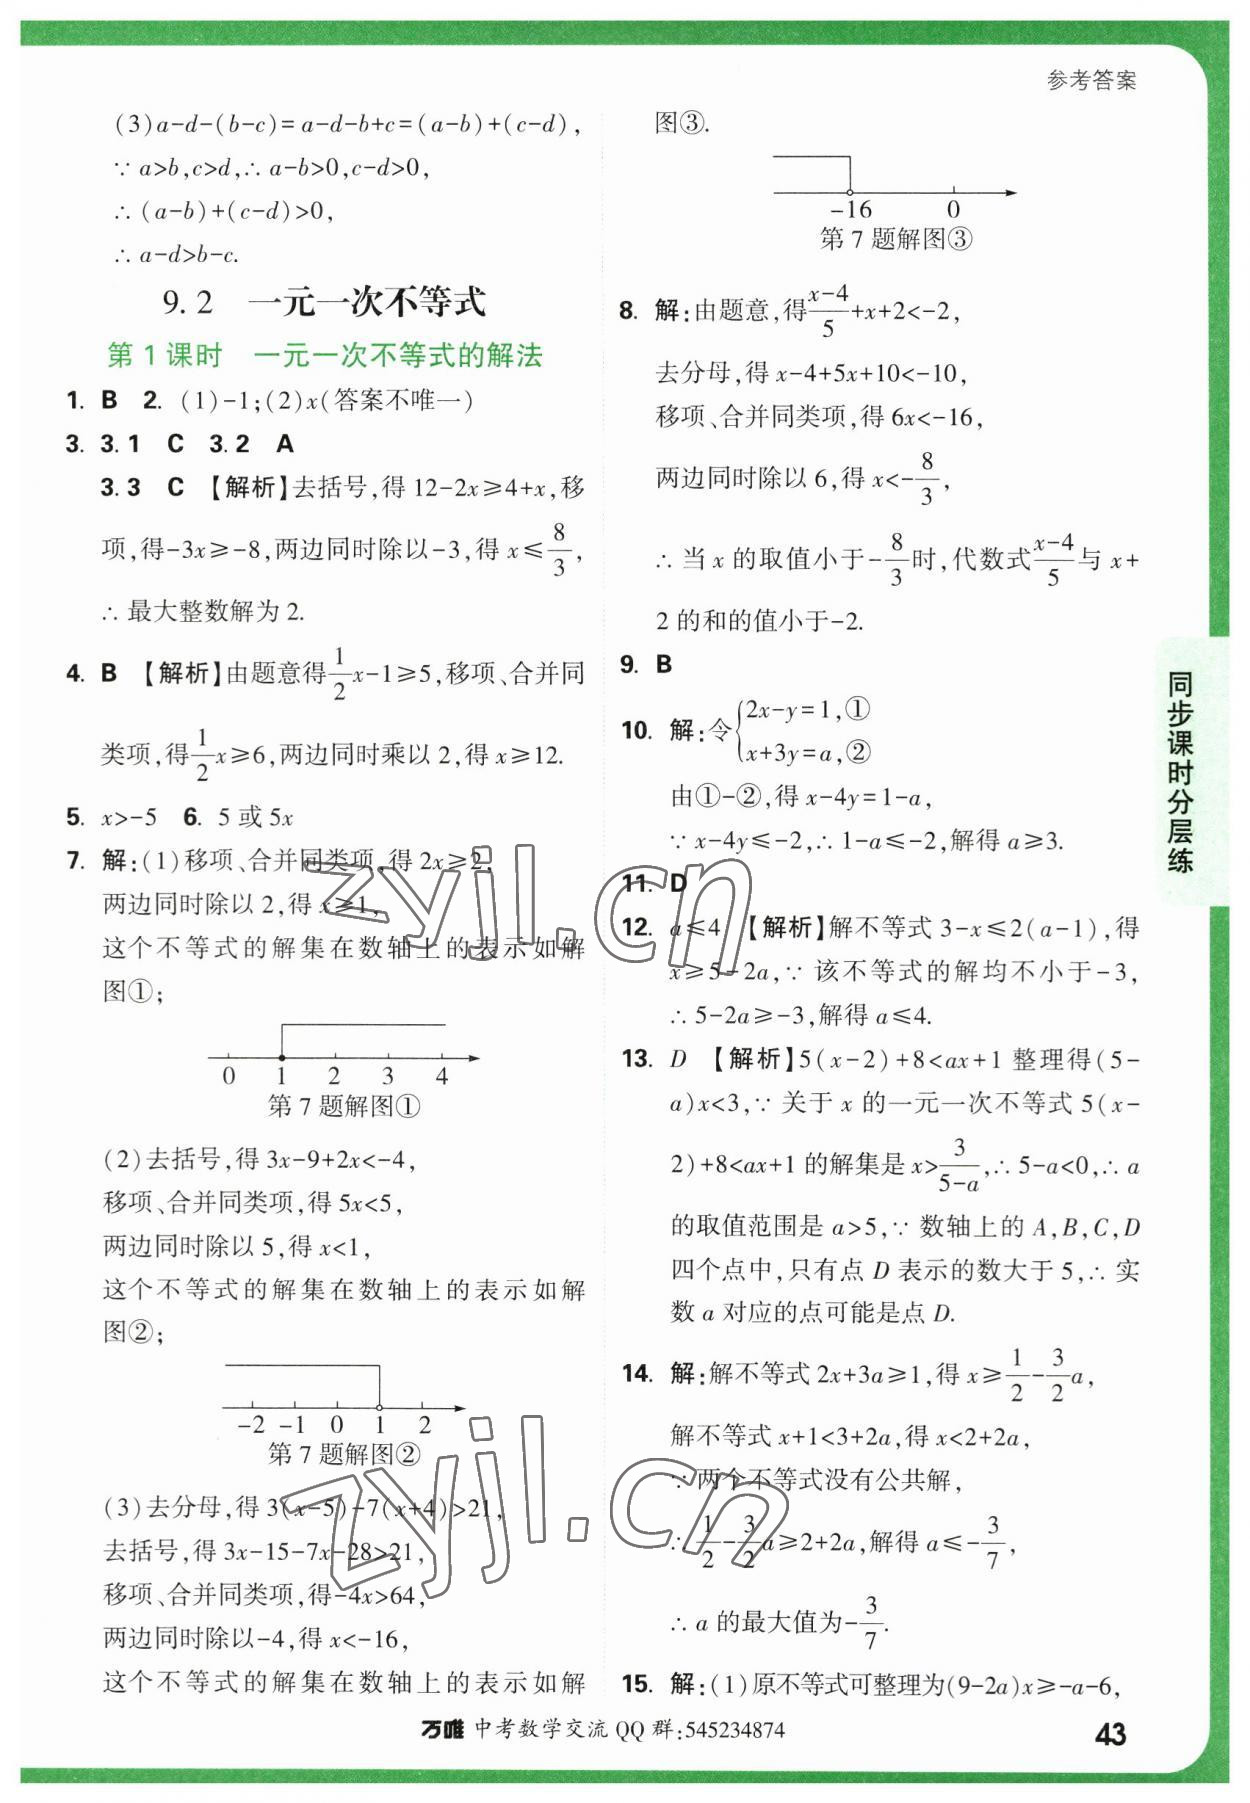 参考答案
(3)a-d-(b-c)=a-d-b+c=(a-b)+(c-d),
∵a>b,c>d,∴a-b>0,c-d>0,
∴(a-b)+(c-d)>0,
∴a-d>b-c.
9.2 一元一次不等式
第1课时 一元一次不等式的解法
1. B 2. (1)-1;(2)x(答案不唯一)
3. 3.1 C 3.2 A
3.3 C 【解析】去括号,得12-2x≥4+x,移
项,得-3x≥-8,两边同时除以-3,得x≤8/3,
∴最大整数解为2.
4. B 【解析】由题意得1/2x-1≥5,移项、合并同
类项,得1/2x≥6,两边同时乘以2,得x≥12.
5. x>-5 6. 5或5x
7. 解:(1)移项、合并同类项,得2x≥2,
两边同时除以2,得x≥1,
这个不等式的解集在数轴上的表示如解
图①;
0 1 2 3 4
第7题解图①
(2)去括号,得3x-9+2x<-4,
移项、合并同类项,得5x<5,
两边同时除以5,得x<1,
这个不等式的解集在数轴上的表示如解
图②;
-2 -1 0 1 2
第7题解图②
(3)去分母,得3(x-5)-7(x+4)>21,
去括号,得3x-15-7x-28>21,
移项、合并同类项,得-4x>64,
两边同时除以-4,得x<-16,
这个不等式的解集在数轴上的表示如解
图③.
-16 0
第7题解图③
8. 解:由题意,得(x-4)/5+x+2<-2,
去分母,得x-4+5x+10<-10,
移项、合并同类项,得6x<-16,
两边同时除以6,得x<-8/3,
∴当x的取值小于-8/3时,代数式(x-4)/5与x+
2的和的值小于-2.
9. B
10. 解:令{2x-y=1,①
x+3y=a,②
由①-②,得x-4y=1-a,
∵x-4y≤-2,∴1-a≤-2,解得a≥3.
11. D
12. a≤4 【解析】解不等式3-x≤2(a-1),得
x≥5-2a,∵该不等式的解均不小于-3,
∴5-2a≥-3,解得a≤4.
13. D 【解析】5(x-2)+8<ax+1整理得(5-
a)x<3,∵关于x的一元一次不等式5(x-
2)+8<ax+1的解集是x>3/(5-a),∴5-a<0,∴a
的取值范围是a>5,∵数轴上的A,B,C,D
四个点中,只有点D表示的数大于5,∴实
数a对应的点可能是点D.
14. 解:解不等式2x+3a≥1,得x≥1/2-3/2a,
解不等式x+1<3+2a,得x<2+2a,
∵两个不等式没有公共解,
∴1/2-3/2a≥2+2a,解得a≤-3/7,
∴a的最大值为-3/7.
15. 解:(1)原不等式可整理为(9-2a)x≥-a-6,
同步课时分层练
万唯 中考数学交流QQ群:545234874
43
zyjl.cn
zyjl.cn